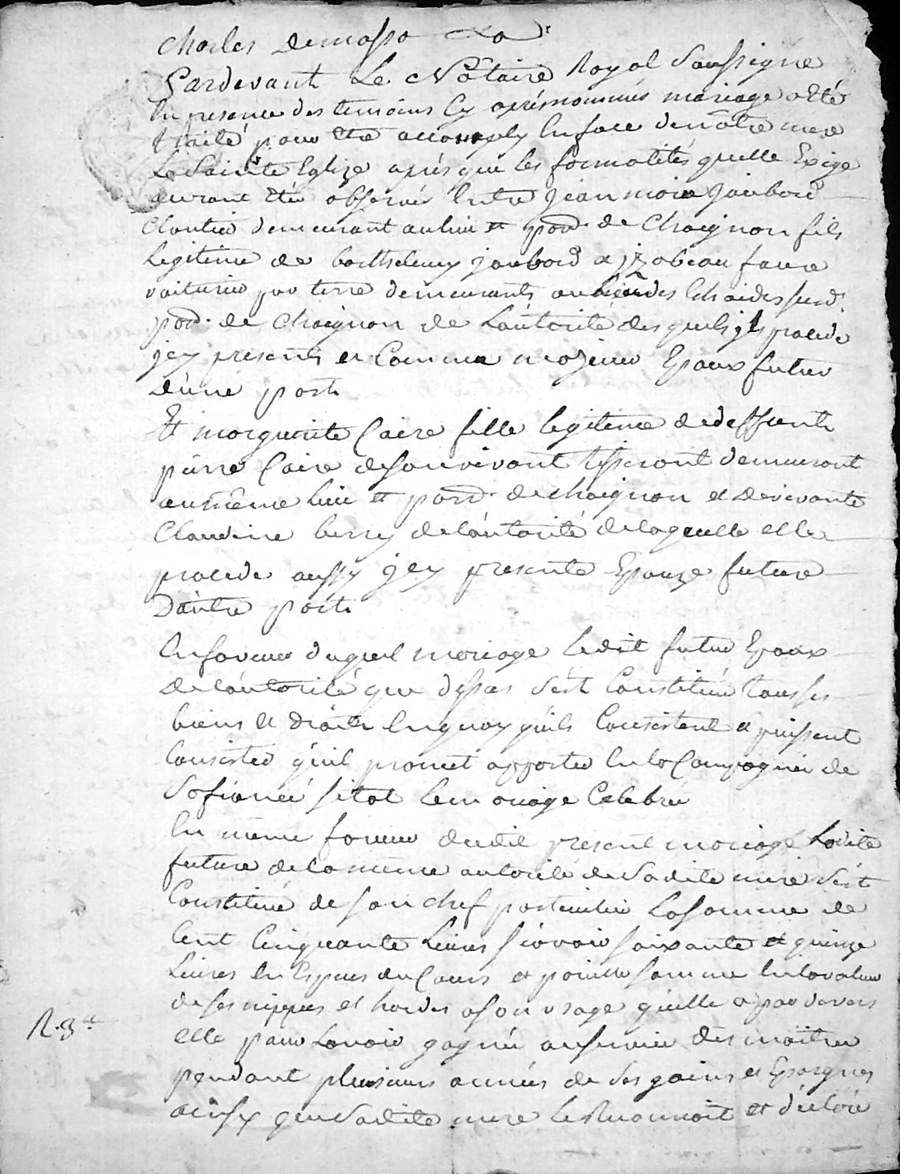 Charles Demassa
Pardevant Le Nôtaire Royal Soussigné
En presence des temoins Cy après nommés mariage a eté
traité pour être accomply En face de nôtre mere
La Sainte Eglize après que les formalités quelle Exige
auront été observé Entre Jean moize Jaubord
Cloutier demeurant au lieu et parr. de Chaignon fils
Legitime de barthelemy jaubord & jzabeau faure
voiturier par terre demeurants au des susd.
parr. de Chaignon de Lautorité desquels jl procede
jcy presents et Comme majeur Epoux futur
d'une part.
Et marguerite Caire fille legitime de deffunt
pierre Caire de son vivant tisserant demeurant
au même lieu et parr. de chaignon et de vivante
Claudine berry de l'autorité de laquelle elle
procede aussy jcy presente Epouze future
D'autre part.
En faveur duquel mariage ledit futur Epoux
de l'autorité que dessus s'est Constitué tous ses
biens et droits En quoy qu'ils Consistent & puissent
Consister qu'il promet apporter En la Compagnie de
Sa fiancée sitot le mariage Celebré
En même faveur dudit present mariage Ladite
future de la même autorité de Sadite mere s'est
Constitué de son chef particulier La somme de
Cent Cinquante Livres sçavoir soixante et quinze
Livres En Especes du Cours et pareille somme En la valeur
de ses nippes et hardes a son usage qu'elle a par devers
elle pour L'avoir gagné au service des maitres
pendant plusieurs années de ses gains et Epargnes
ainsy que Sadite mere le Reconnoit et declare